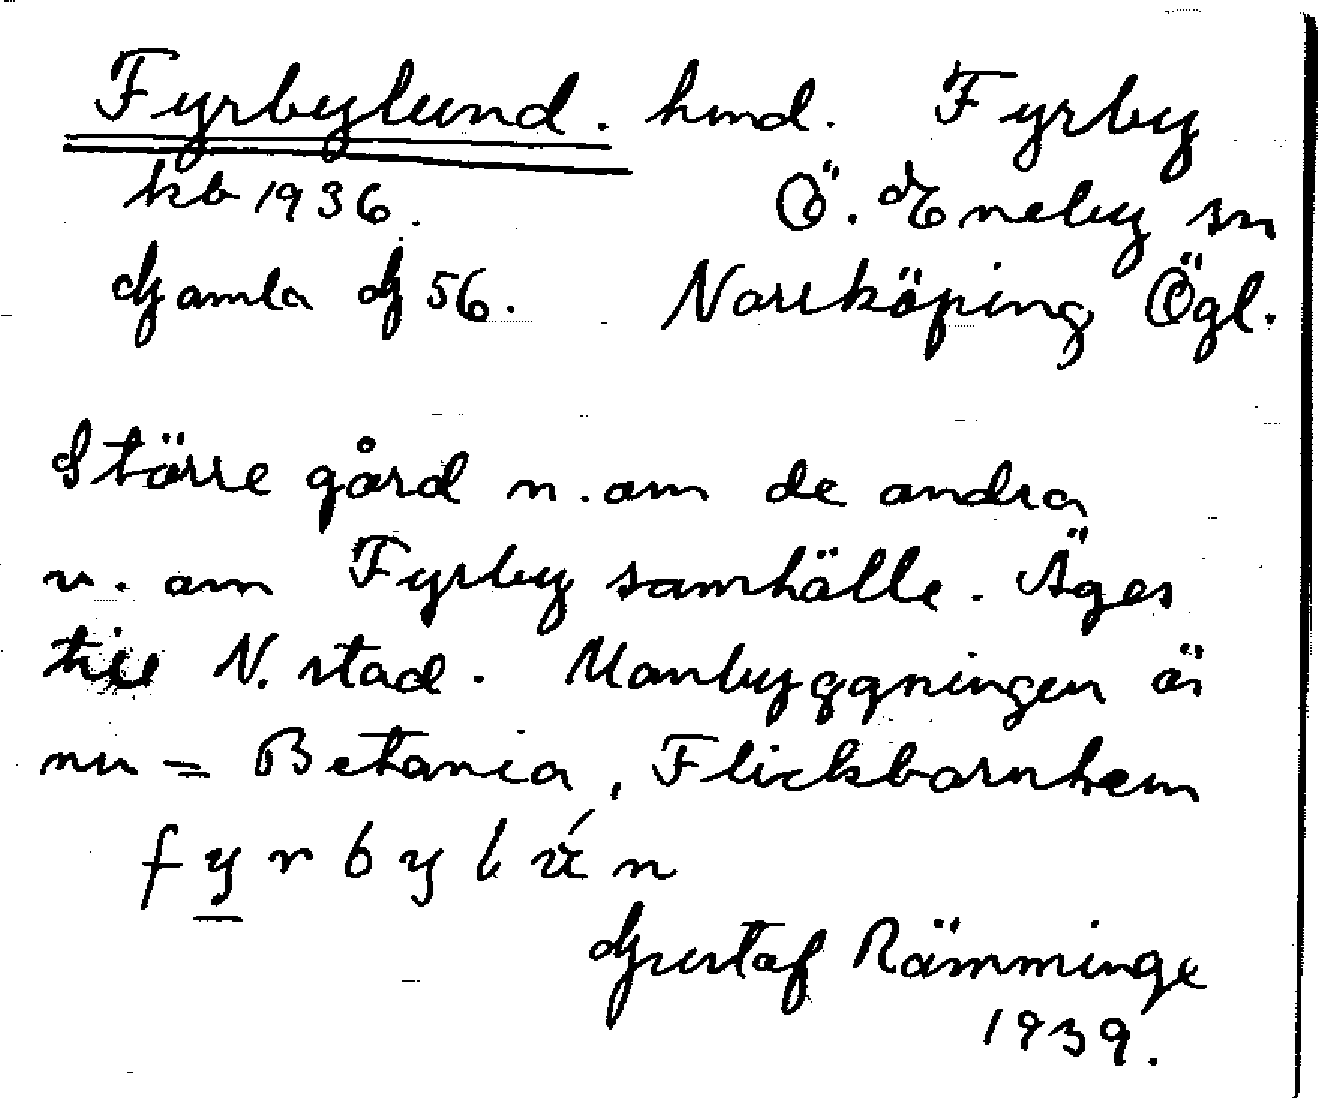 Fyrbylund. hmd. Fyrby
kb 1936. Ö. Eneby sn
Gamla G 56. Norrköping Ögl.
Större gård n. om de andra
v. om Fyrby samhälle. Äges
till N. stad. Manbyggningen är
nu = Betania, Flickbarnhem
fyrbylún
Gustaf Rämminge
1939.